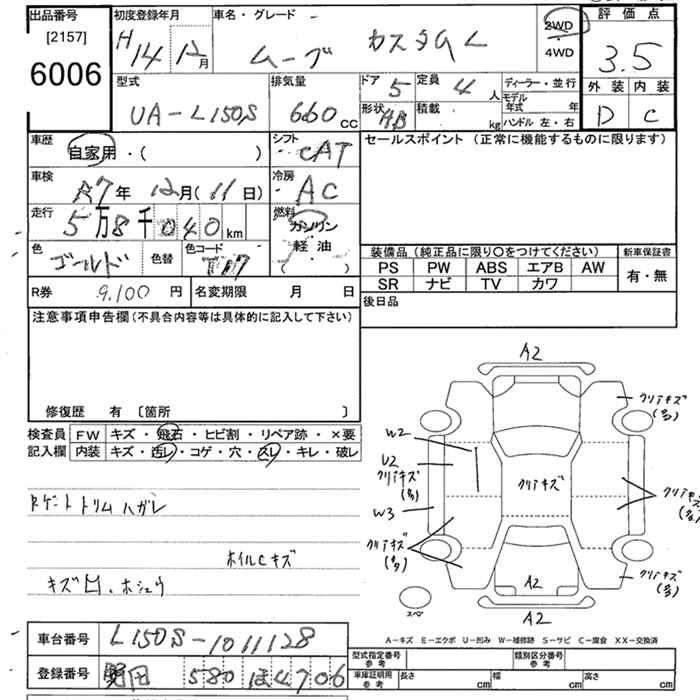 出品番号
[2157]
6006
初度登録年月
H14 12月
車名・グレード
ムーブ カスタム L
2WD
4WD
評価点
3.5
外装 内装
D C
型式
UA-L150S
排気量
660 cc
ドア 5
定員 4 人
形状 HB
積載 kg
ディーラー・並行
モデル年式 年
ハンドル 左・右
車歴
自家用・( )
シフト
CAT
車検
R7年 12月(11日)
冷房
AC
走行
5万8千040km
燃料
ガソリン
軽油
( )
色
ゴールド
色替
色コード
T17
R券 9,100円
名変期限 月 日
セールスポイント (正常に機能するものに限ります)
装備品(純正品に限り〇をつけてください)
新車保証書
PS PW ABS エアB AW
SR ナビ TV カワ
有・無
後日品
注意事項申告欄(不具合内容等は具体的に記入して下さい)
修復歴 有 〔箇所 〕
検査員記入欄
FW キズ・飛石・ヒビ割・リペア跡・×要
内装 キズ・汚レ・コゲ・穴・スレ・キレ・破レ
Rゲートトリムハガレ
ホイルCキズ
キズ凹、ホシュウ
A2
クリアキズ
(多)
W2
U2
クリアキズ
(多)
W3
クリアキズ
クリアキズ
(多)
クリアキズ
(多)
A2
クリアキズ
(多)
スペ
A2
A-キズ E-エクボ U-凹み W-補修跡 S-サビ C-腐食 XX-交換済
車台番号 L150S-1011128
登録番号 580 ほ4706
型式指定番号
参考
類別区分番号
参考
車庫証明用
参考
長さ cm
幅 cm
高さ cm